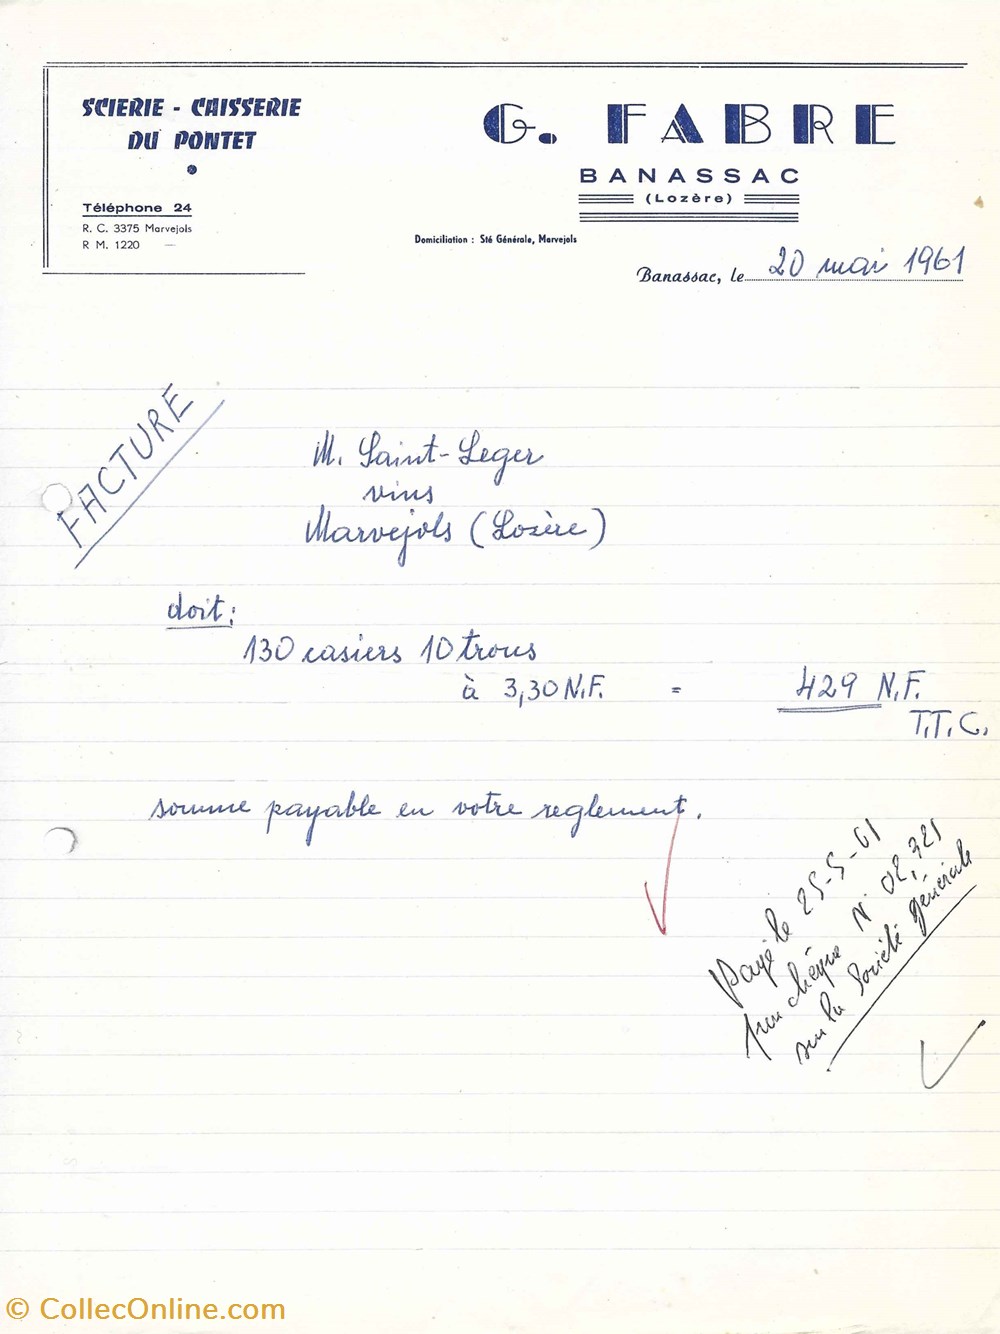 SCIERIE - CAISSERIE
DU PONTET
Téléphone 24
R. C. 3375 Marvejols
R M. 1220
G. FABRE
BANASSAC
(Lozère)
Domiciliation : Sté Générale, Marvejols
Banassac, le 20 mai 1961
FACTURE
M. Saint-Leger
vins
Marvejols (Lozère)
doit :
130 casiers 10 trous
à 3,30 N.F. = 429 N.F.
T.T.C.
somme payable en votre reglement.
Payé le 25-5-61
par chèque N° 02,321
sur la Société générale
© CollecOnline.com